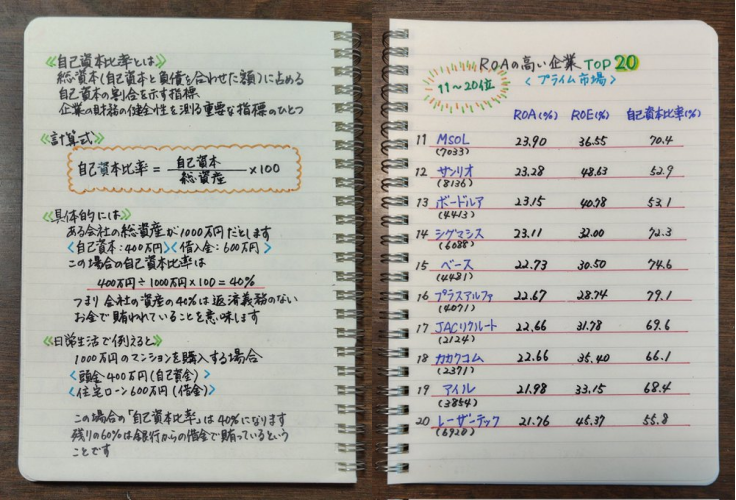 《自己資本比率とは》
総資本(自己資本と負債を合わせた額)に占める
自己資本の割合を示す指標
企業の財務の健全性を測る重要な指標のひとつ
《計算式》
自己資本比率 = 自己資本 / 総資産 ×100
《具体的には》
ある会社の総資産が1000万円だとします
〈自己資本:400万円〉〈借入金:600万円〉
この場合の自己資本比率は
400万円÷1000万円×100=40%
つまり会社の資産の40%は返済義務のない
お金で賄われていることを意味します
《日常生活で例えると》
1000万円のマンションを購入する場合
〈頭金400万円(自己資金)〉
〈住宅ローン600万円(借金)〉
この場合の「自己資本比率」は40%になります
残りの60%は銀行からの借金で賄っているという
ことです
ROAの高い企業 TOP20
11〜20位
〈プライム市場〉
ROA(%) ROE(%) 自己資本比率(%)
11 MSOL 23.90 36.55 70.4
(7033)
12 サンリオ 23.28 48.63 52.9
(8136)
13 ボードルア 23.15 40.78 53.1
(4413)
14 シグマシス 23.11 32.00 72.3
(6088)
15 ベース 22.73 30.50 74.6
(4481)
16 プラスアルファ 22.67 28.74 79.1
(4071)
17 JACリクルート 22.66 31.78 69.6
(2124)
18 カカクコム 22.66 35.40 66.1
(2371)
19 アイル 21.98 33.15 68.4
(3854)
20 レーザーテック 21.76 45.37 55.8
(6920)